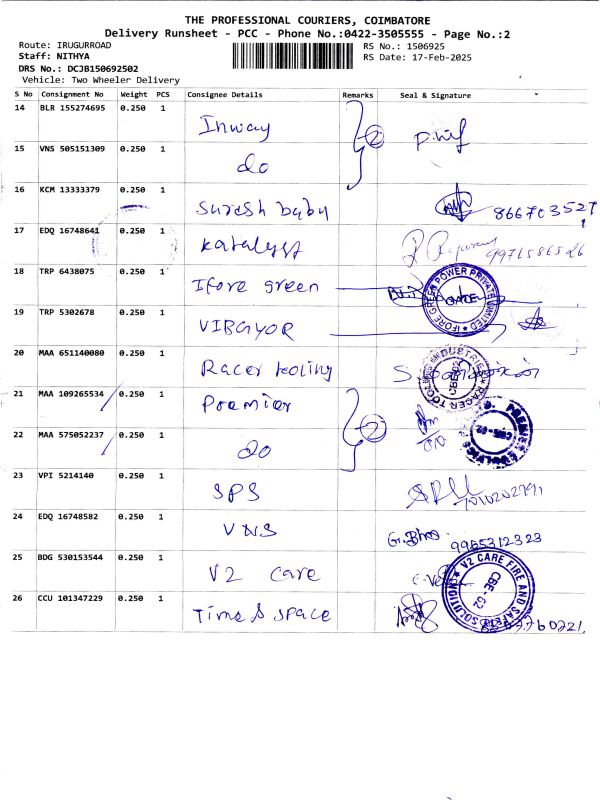 THE PROFESSIONAL COURIERS, COIMBATORE
Delivery Runsheet - PCC - Phone No.:0422-3505555 - Page No.:2
Route: IRUGURROAD
RS No.: 1506925
Staff: NITHYA
RS Date: 17-Feb-2025
DRS No.: DCJB150692502
Vehicle: Two Wheeler Delivery
S No Consignment No Weight PCS Consignee Details Remarks Seal & Signature
14 BLR 155274695 0.250 1 Inway 2
15 VNS 505151309 0.250 1 do
16 KCM 13333379 0.250 1 Suresh babu
17 EDQ 16748641 0.250 1 Katalyst 9976586526
18 TRP 6438075 0.250 1 Ifore green IFORE GREEN POWER PRIVATE LIMITED
19 TRP 5302678 0.250 1 VIBGYOR
20 MAA 651140080 0.250 1 Racer tooling
21 MAA 109265534 0.250 1 Premier 2
22 MAA 575052237 0.250 1 do
23 VPI 5214140 0.250 1 SPS
24 EDQ 16748582 0.250 1 VNS 9965312323
25 BDG 530153544 0.250 1 V2 care V2 CARE FIRE AND SAFETY SOLUTIONS
26 CCU 101347229 0.250 1 Time & space